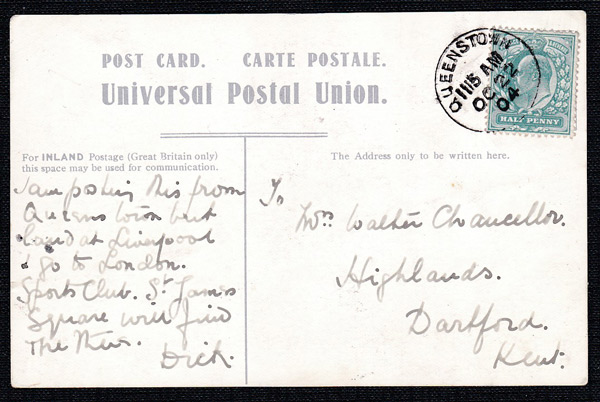 POST CARD. CARTE POSTALE.
Universal Postal Union.
QUEENSTOWN
11 15 AM
OC 22
04
HALF PENNY
For INLAND Postage (Great Britain only)
this space may be used for communication.
The Address only to be written here.
I am posting this from
Queenstown but
land at Liverpool
& go to London.
Sports Club. St James
Square will find
me then.
Dick.
To
Mrs Walter Chancellor.
Highlands.
Dartford.
Kent.